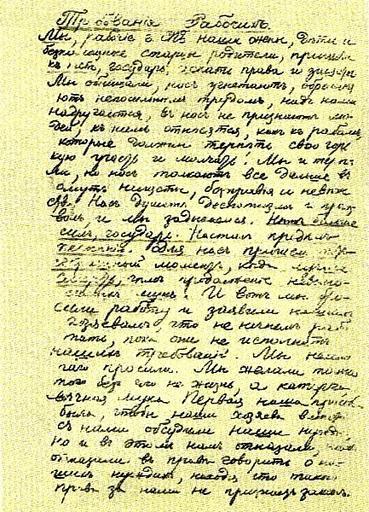 Требованія Рабочихъ.
Мы, рабочіе г. СПБ наши жены, дѣти и
безпомощные старцы родители, пришли
къ тебѣ, государь, искати правды и защиты
Мы обнищали, насъ угнетаютъ, обременя
ютъ непосильнымъ трудомъ, надъ нами
надругаются, въ насъ не признаютъ лю
дей, къ намъ относятся, какъ къ рабамъ,
которые должны терпѣть свою горь
кую участь и молчать. Мы и терпѣ
ли, но насъ толкаютъ все дальше въ
омутъ нищеты, безправія и невѣже
ства. Насъ душитъ деспотизмъ и произ
волъ, и мы задыхаемся. Нѣтъ больше
силъ, государь. Насталъ предѣлъ
терпѣнію. Для насъ пришелъ
моментъ, когда лучше
смерть, чѣмъ продолженіе невыно
симыхъ мукъ. И вотъ мы бро
сили работу и заявили нашимъ
хозяевамъ, что не начнемъ рабо
тать, пока они не исполнятъ
нашихъ требованій. Мы не много
чего просили. Мы желали только
того безъ чего не жизнь, а каторга
вѣчная мука. Первая наша просьба
была, чтобы наши хозяева вмѣстѣ
съ нами обсудили наши нужды,
но и въ этомъ намъ отказали, намъ
отказали въ правѣ говорить о на
шихъ нуждахъ, находя, что такого
права за нами не признаетъ законъ.